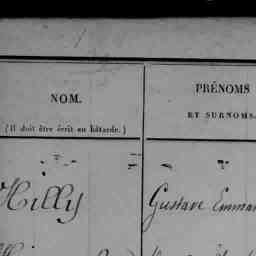 NOM.
(Il doit être écrit en bâtarde.)
PRÉNOMS
ET SURNOMS.
Hilly
Gustave Emman